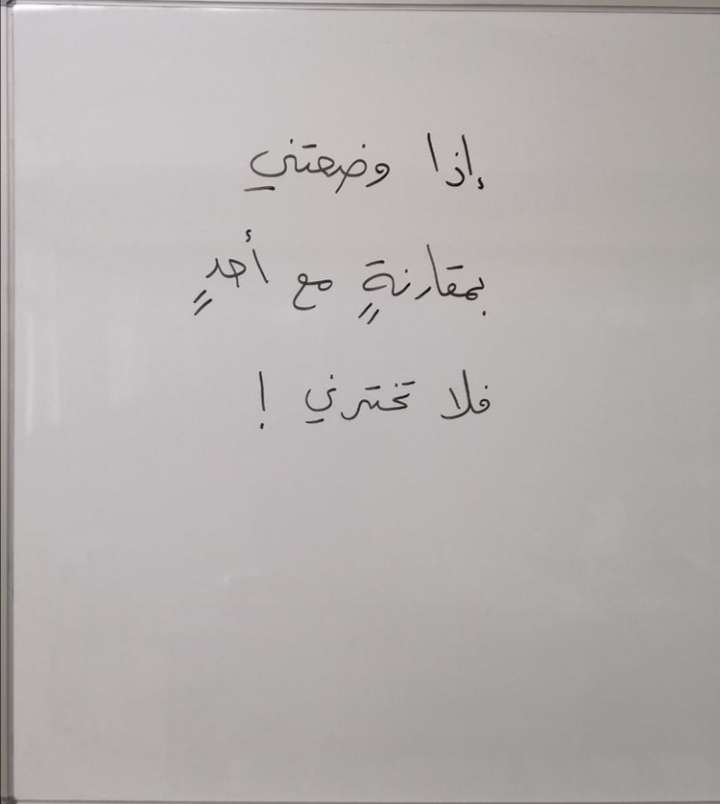 إذا وضعتني
بمقارنةٍ مع أحدٍ
فلا تخترني !